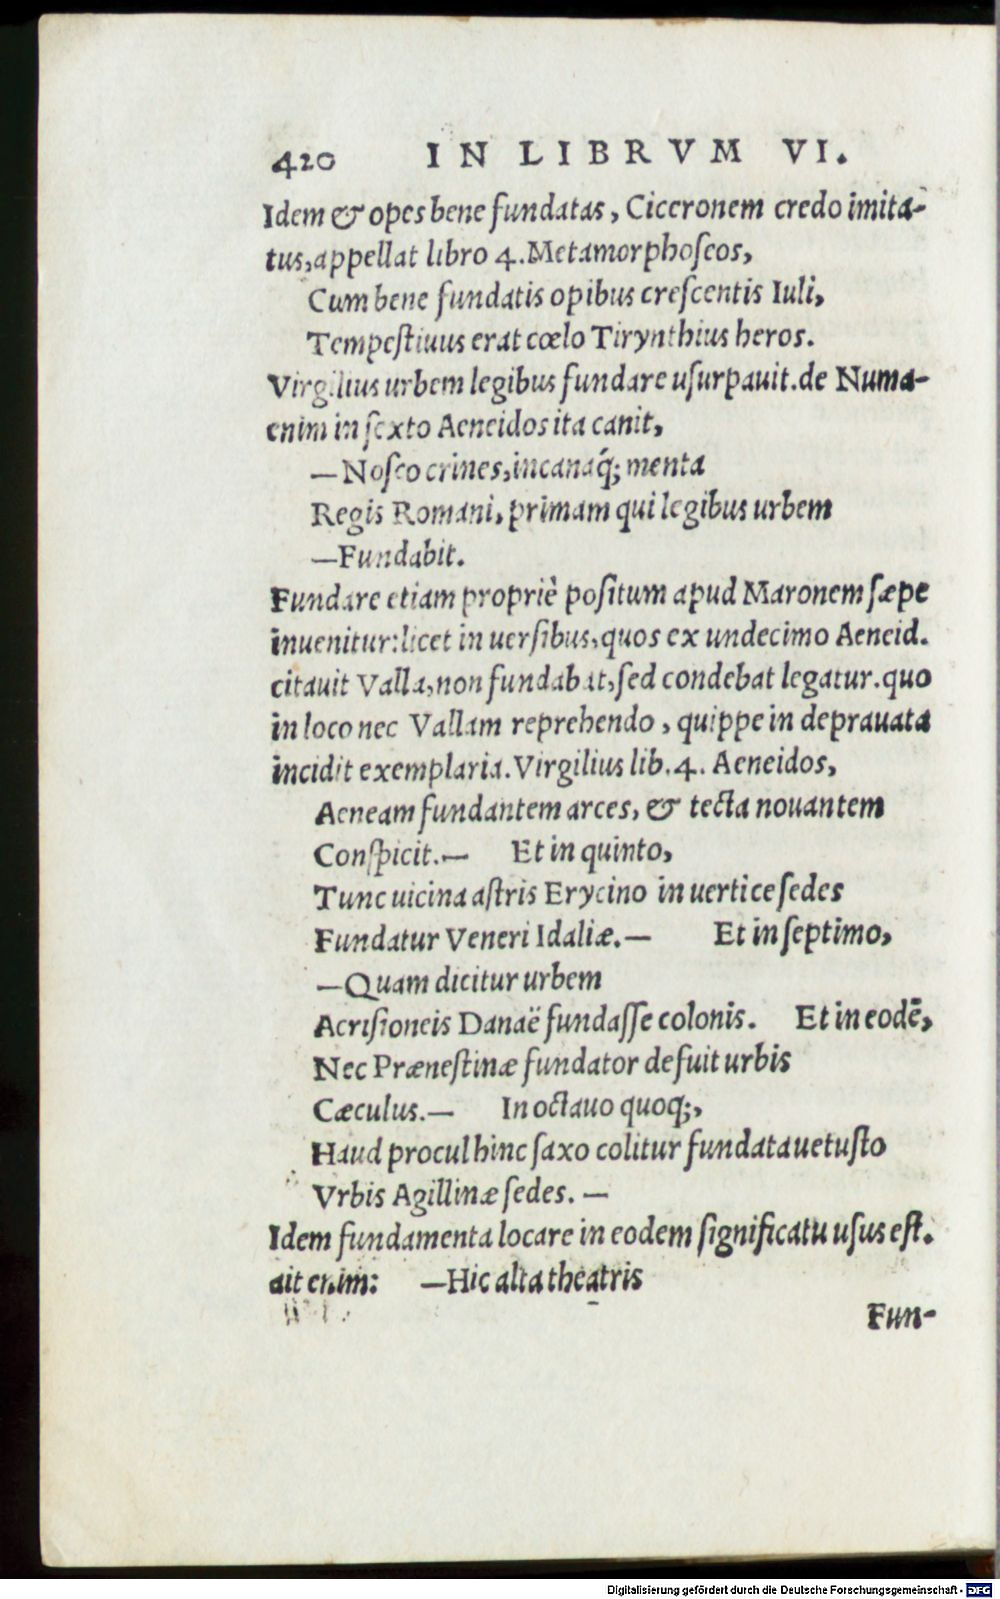 420 IN LIBRVM VI.
Idem & opes bene fundatas, Ciceronem credo imita-
tus, appellat libro 4. Metamorphoſeos,
Cum bene fundatis opibus creſcentis Iuli,
Tempeſtiuus erat cœlo Tirynthius heros.
Virgilius urbem legibus fundare uſurpauit. de Numa-
enim in ſexto Aeneidos ita canit,
—Noſco crines, incanaq́; menta
Regis Romani, primam qui legibus urbem
—Fundabit.
Fundare etiam propriè poſitum apud Maronem ſæpe
inuenitur: licet in uerſibus, quos ex undecimo Aeneid.
citauit Valla, non fundabat, ſed condebat legatur. quo
in loco nec Vallam reprehendo, quippe in deprauata
incidit exemplaria. Virgilius lib. 4. Aeneidos,
Aeneam fundantem arces, & tecta nouantem
Conſpicit.— Et in quinto,
Tunc uicina aſtris Erycino in uertice ſedes
Fundatur Veneri Idaliæ.— Et in ſeptimo,
—Quam dicitur urbem
Acriſioneis Danaë fundaſſe colonis. Et in eodē,
Nec Præneſtinæ fundator defuit urbis
Cæculus.— In octauo quoq;,
Haud procul hinc ſaxo colitur fundata uetuſto
Vrbis Agillinæ ſedes. —
Idem fundamenta locare in eodem ſignificatu uſus eſt.
ait enim: —Hic alta theatris
Fun-
Digitalisierung gefördert durch die Deutsche Forschungsgemeinschaft - DFG